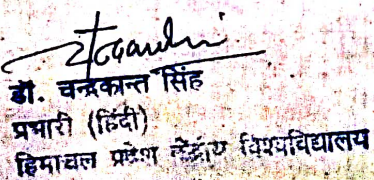 डॉ. चन्द्रकान्त सिंह
प्रभारी (हिंदी)
हिमाचल प्रदेश केंद्रीय विश्वविद्यालय